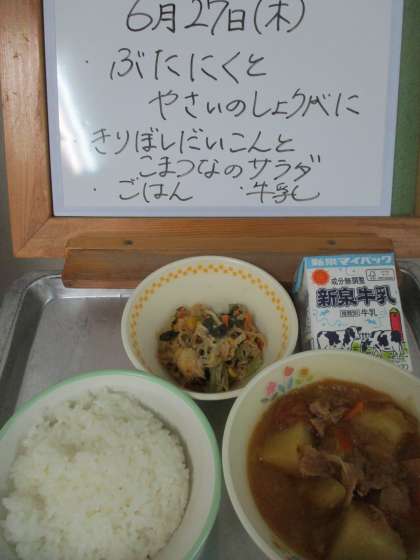 6月27日(木)
・ぶたにくと
やさいのしょうべに
・きりぼしだいこんと
こまつなのサラダ
・ごはん ・牛乳
新泉マイパック
成分無調整
新泉牛乳
種類別 牛乳